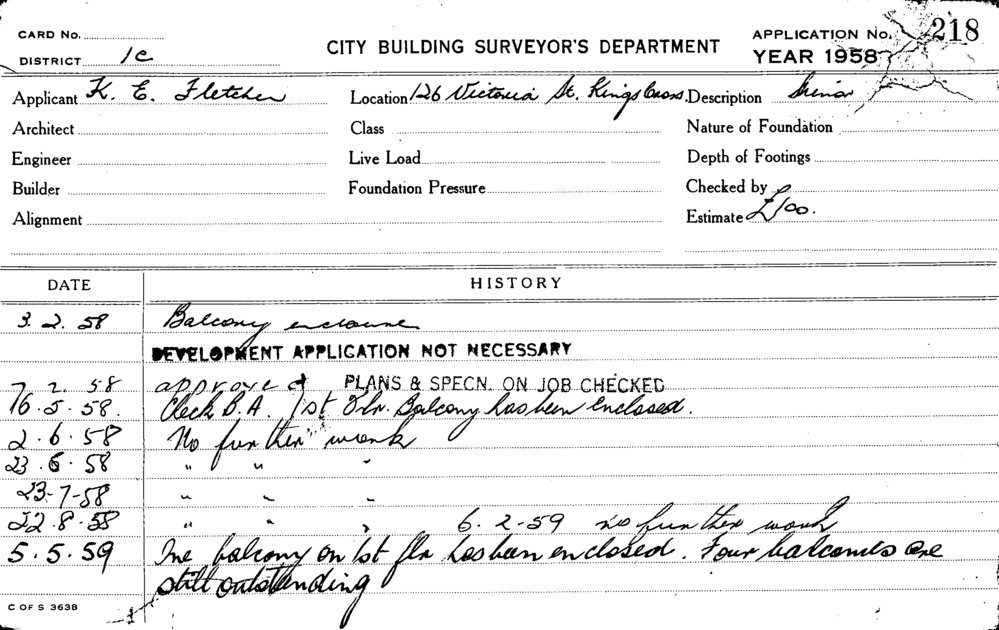 CARD No.
DISTRICT 1c
CITY BUILDING SURVEYOR'S DEPARTMENT
APPLICATION No. 218
YEAR 1958
Applicant K. E. Fletcher Location 126 Victoria St. Kings Cross. Description Minor
Architect Class Nature of Foundation
Engineer Live Load Depth of Footings
Builder Foundation Pressure Checked by
Alignment Estimate £100.
DATE HISTORY
3. 2. 58 Balcony enclosure
DEVELOPMENT APPLICATION NOT NECESSARY
7. 2. 58 approved PLANS & SPECN. ON JOB CHECKED
16. 5. 58. Check B.A. 1st Flr. Balcony has been enclosed.
2. 6. 58 No further work
23. 6. 58 " " "
23-7-58 " " "
22. 8. 58 " " " 6. 2-59 no further work
5. 5. 59 One balcony on 1st flr has been enclosed. Four balconies are
still outstanding
C OF S 3638